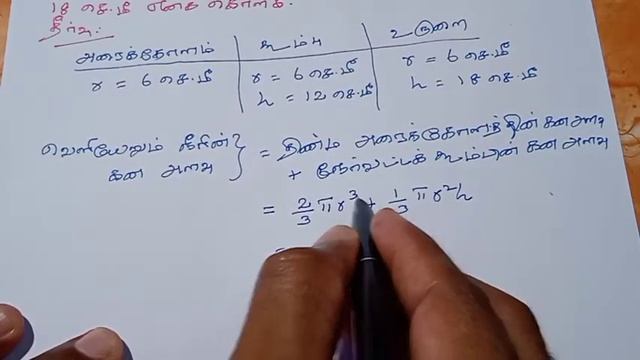 18 செ.மீ எனக் கொள்க.
தீர்வு:
அரைக்கோளம் கூம்பு உருளை
r = 6 செ.மீ r = 6 செ.மீ r = 6 செ.மீ
h = 12 செ.மீ h = 18 செ.மீ
வெளியேறும் நீரின் கன அளவு } = திண்ம அரைக்கோளத்தின் கன அளவு
+ நேர்வட்டக் கூம்பின் கன அளவு
= 2/3 πr³ + 1/3 πr²h
=